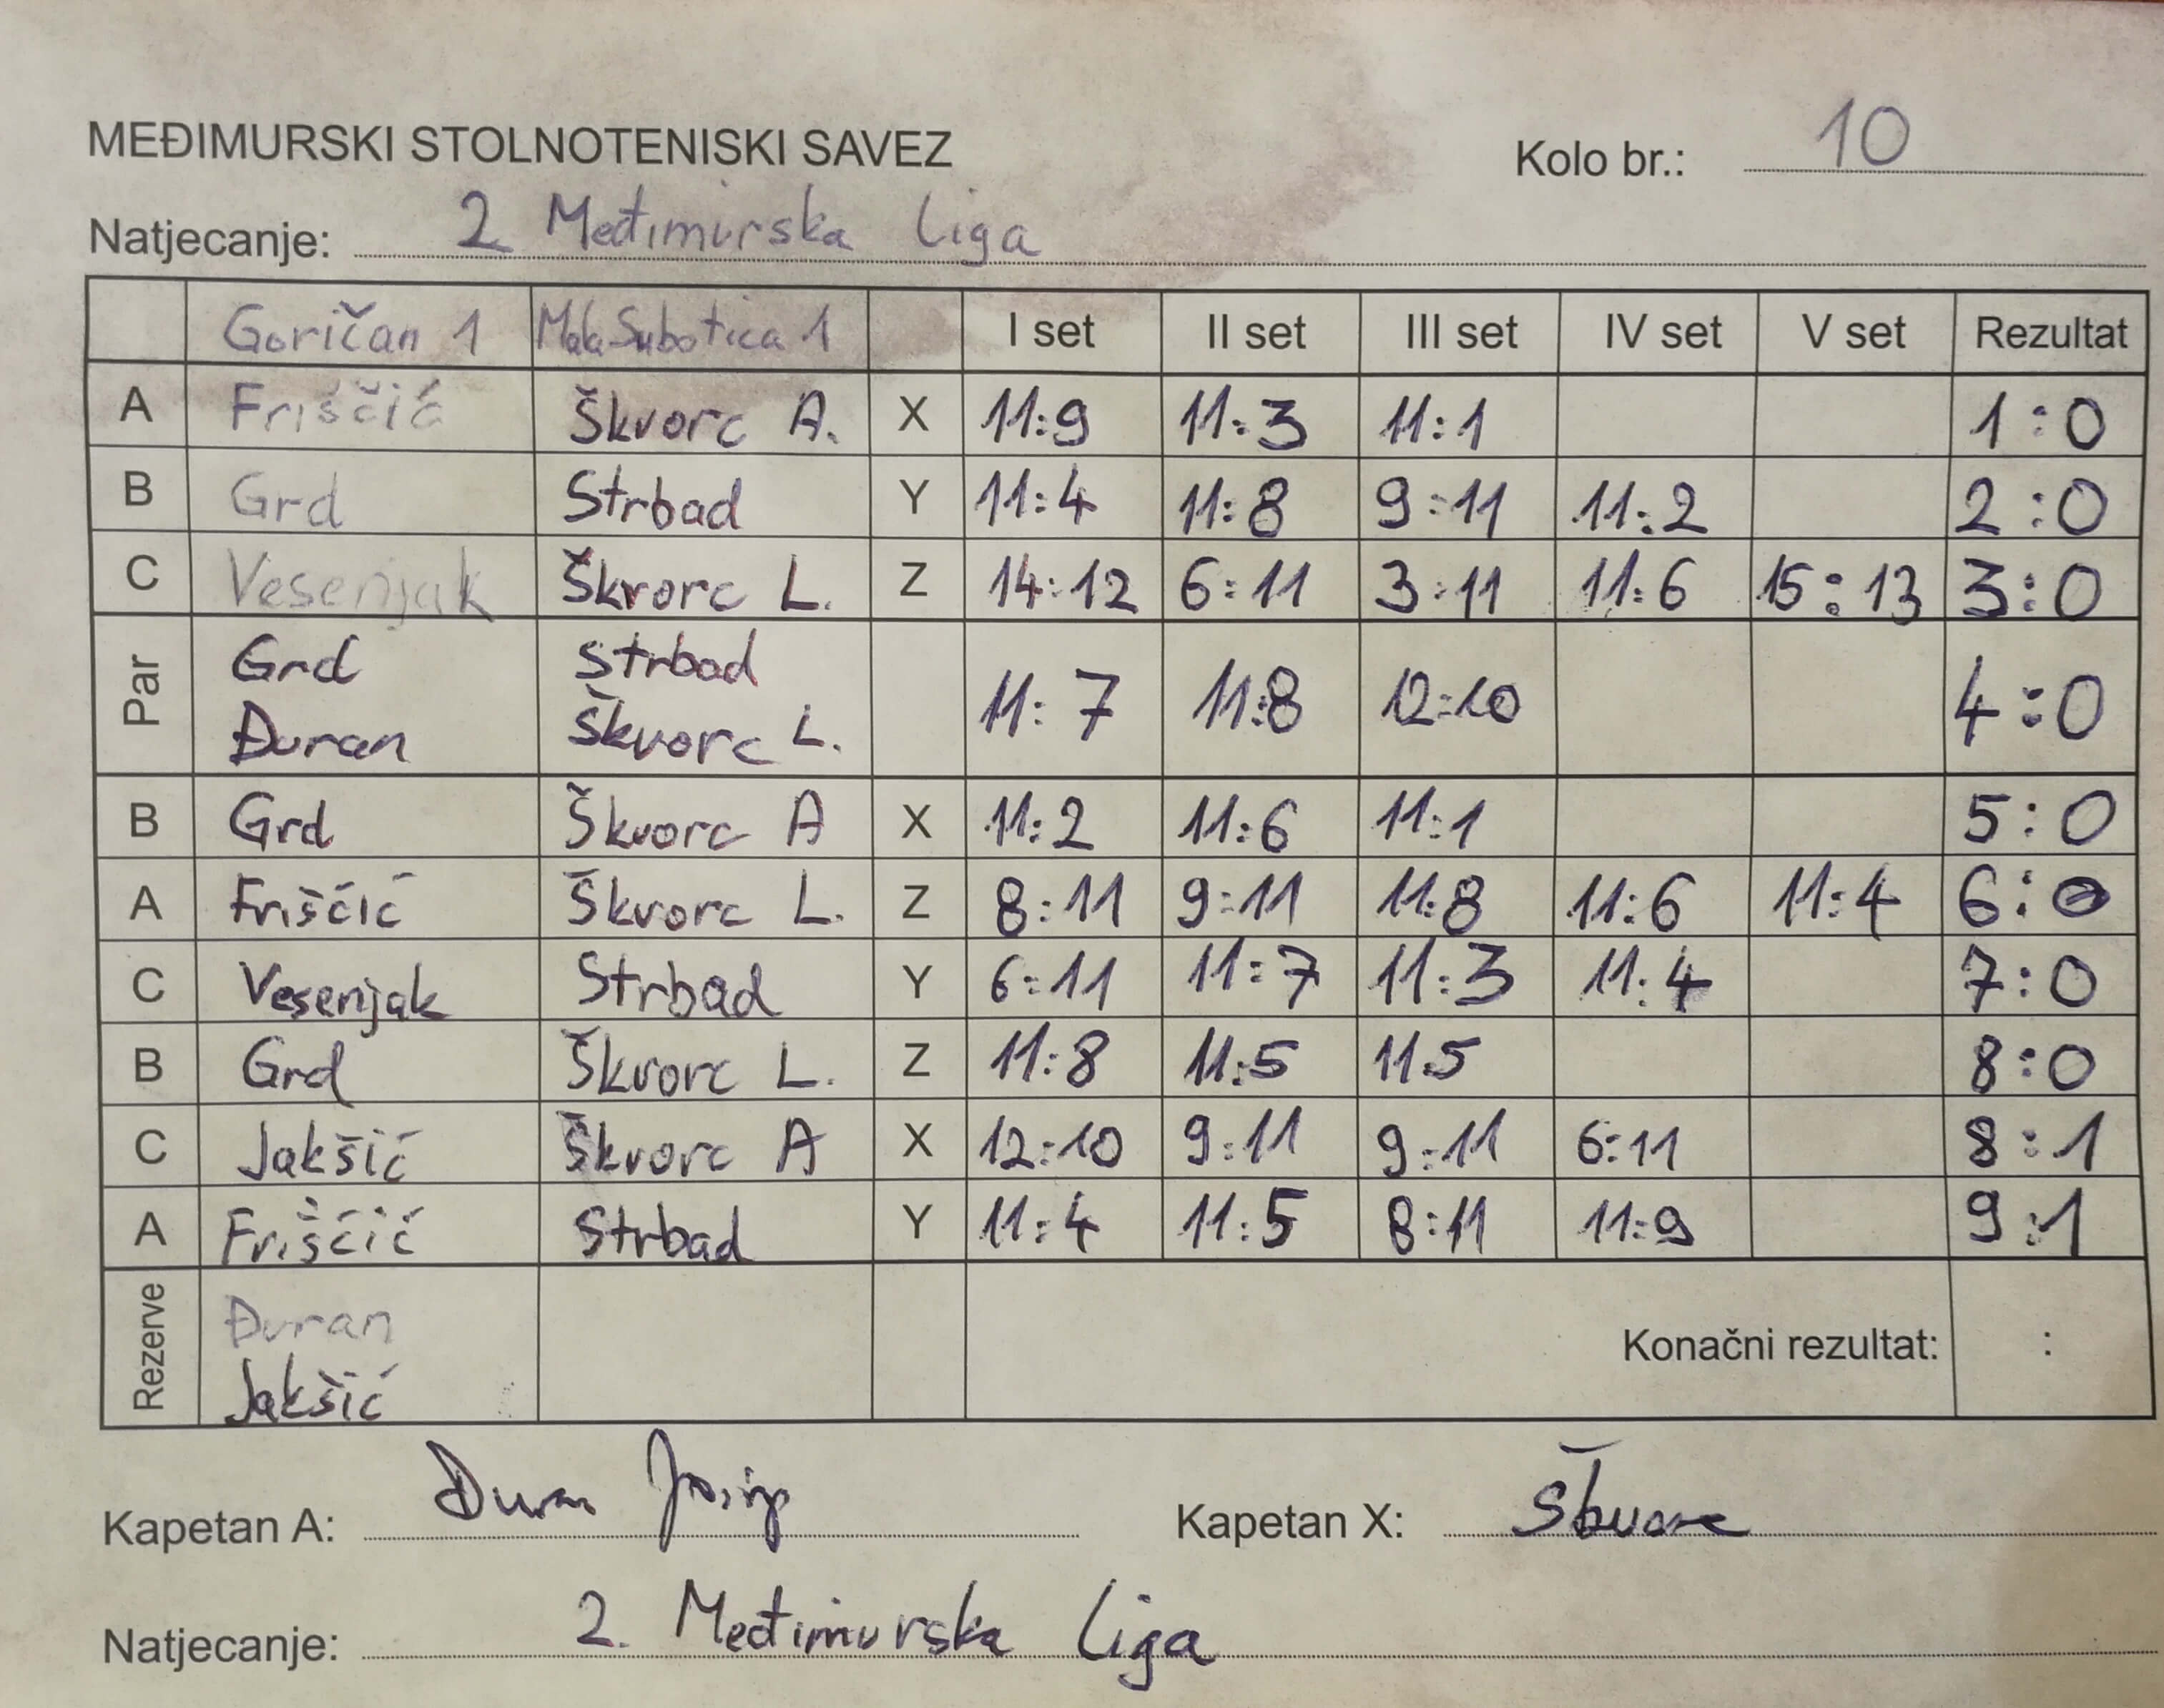 MEĐIMURSKI STOLNOTENISKI SAVEZ Kolo br.: 10
Natjecanje: 2 Međimurska liga
Goričan 1 Mala Subotica 1 I set II set III set IV set V set Rezultat
A Friščić Škvorc A. X 11:9 11:3 11:1 1:0
B Grd Strbad Y 11:4 11:8 9:11 11:2 2:0
C Vesenjak Škvorc L. Z 14:12 6:11 3:11 11:6 15:13 3:0
Par Grd Strbad 11:7 11:8 12:10 4:0
Đuran Škvorc L.
B Grd Škvorc A X 11:2 11:6 11:1 5:0
A Friščić Škvorc L. Z 8:11 9:11 11:8 11:6 11:4 6:0
C Vesenjak Strbad Y 6:11 11:7 11:3 11:4 7:0
B Grd Škvorc L. Z 11:8 11:5 11.5 8:0
C Jakšić Škvorc A X 12:10 9:11 9:11 6:11 8:1
A Friščić Strbad Y 11:4 11:5 8:11 11:9 9:1
Rezerve Đuran Konačni rezultat: :
Jakšić
Kapetan A: Đuran Josip Kapetan X: Škvorc
Natjecanje: 2. Međimurska liga